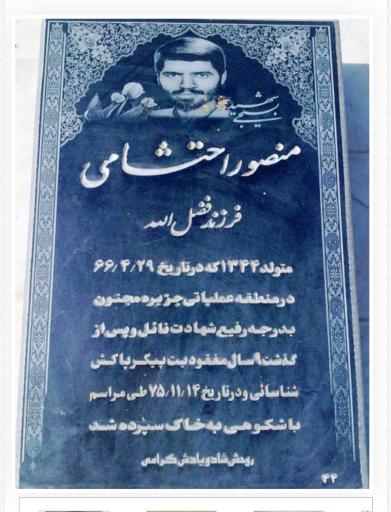 شهید بسیجی
منصور احتشامی
فرزند فضل الله
متولد ۱۳۴۴ که در تاریخ ۶۶/۴/۲۹
در منطقه عملیاتی جزیره مجنون
بدرجه رفیع شهادت نائل و پس از
گذشت ۹ سال مفقودیت پیکر پاکش
شناسائی و در تاریخ ۷۵/۱۱/۱۴ طی مراسم
با شکوهی به خاک سپرده شد
روحش شاد و یادش گرامی
۴۴